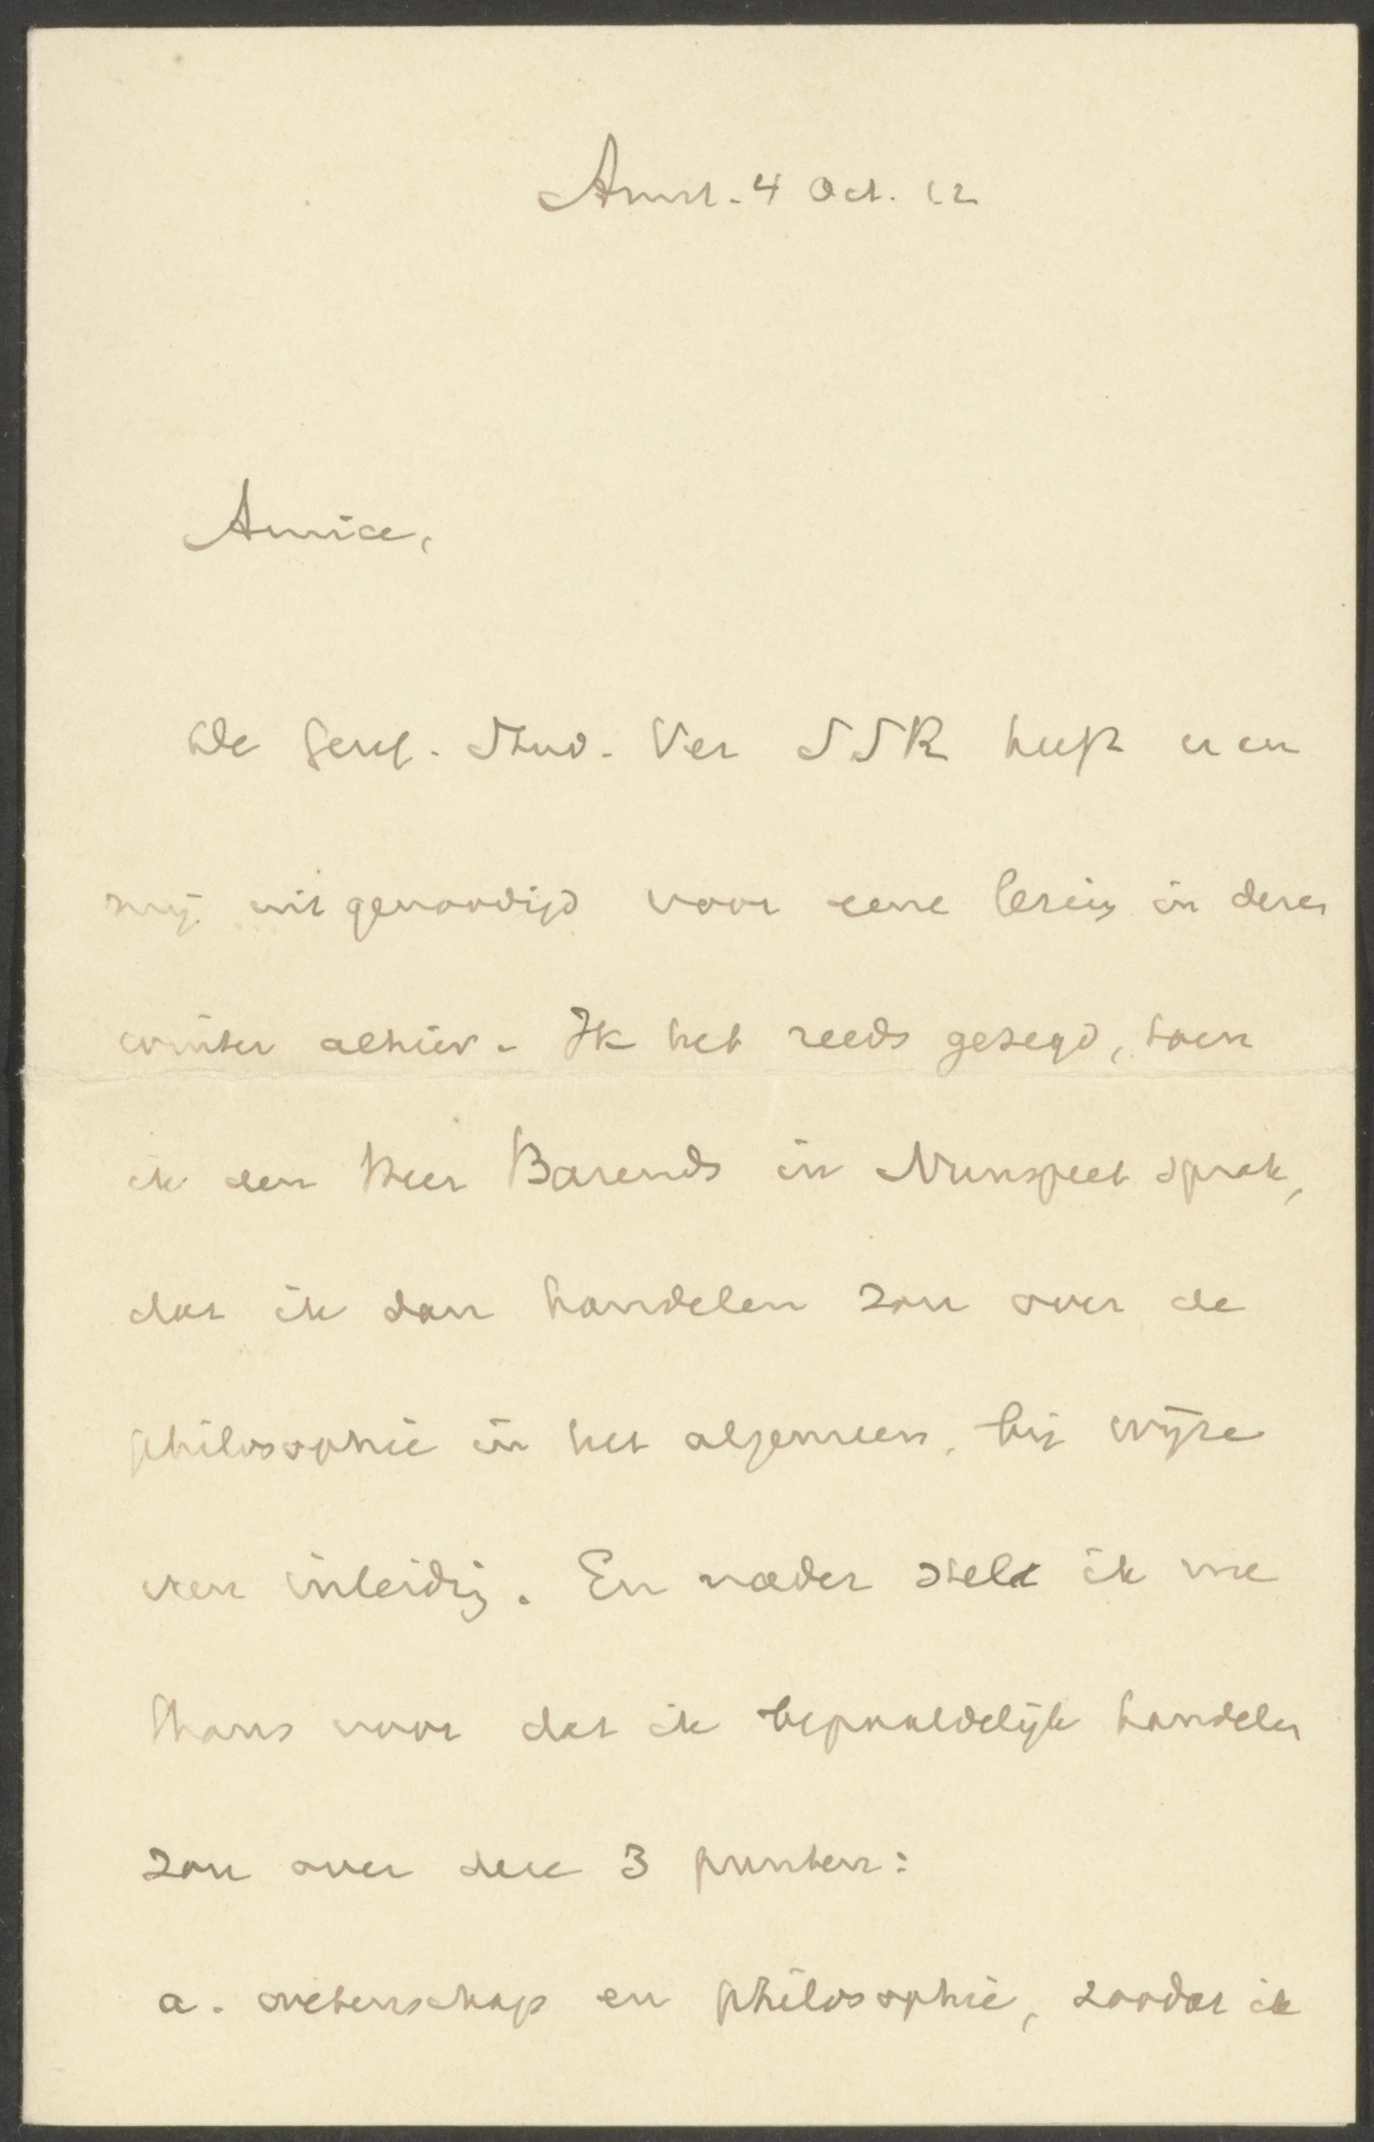 Amst. 4 Oct. 12
Amice,
De Geref. Stud. Ver SSR heeft u en
mij uitgenoodigd voor eene lezing in dezen
winter alhier. Ik heb reeds gezegd, toen
ik den Heer Barends in Nunspeet sprak,
dat ik dan handelen zou over de
philosophie in het algemeen, bij wijze
van inleidg. En nader stel ik me
thans voor dat ik bepaaldelijk handelen
zou over deze 3 punten:
a. wetenschap en philosophie, zoodat ik